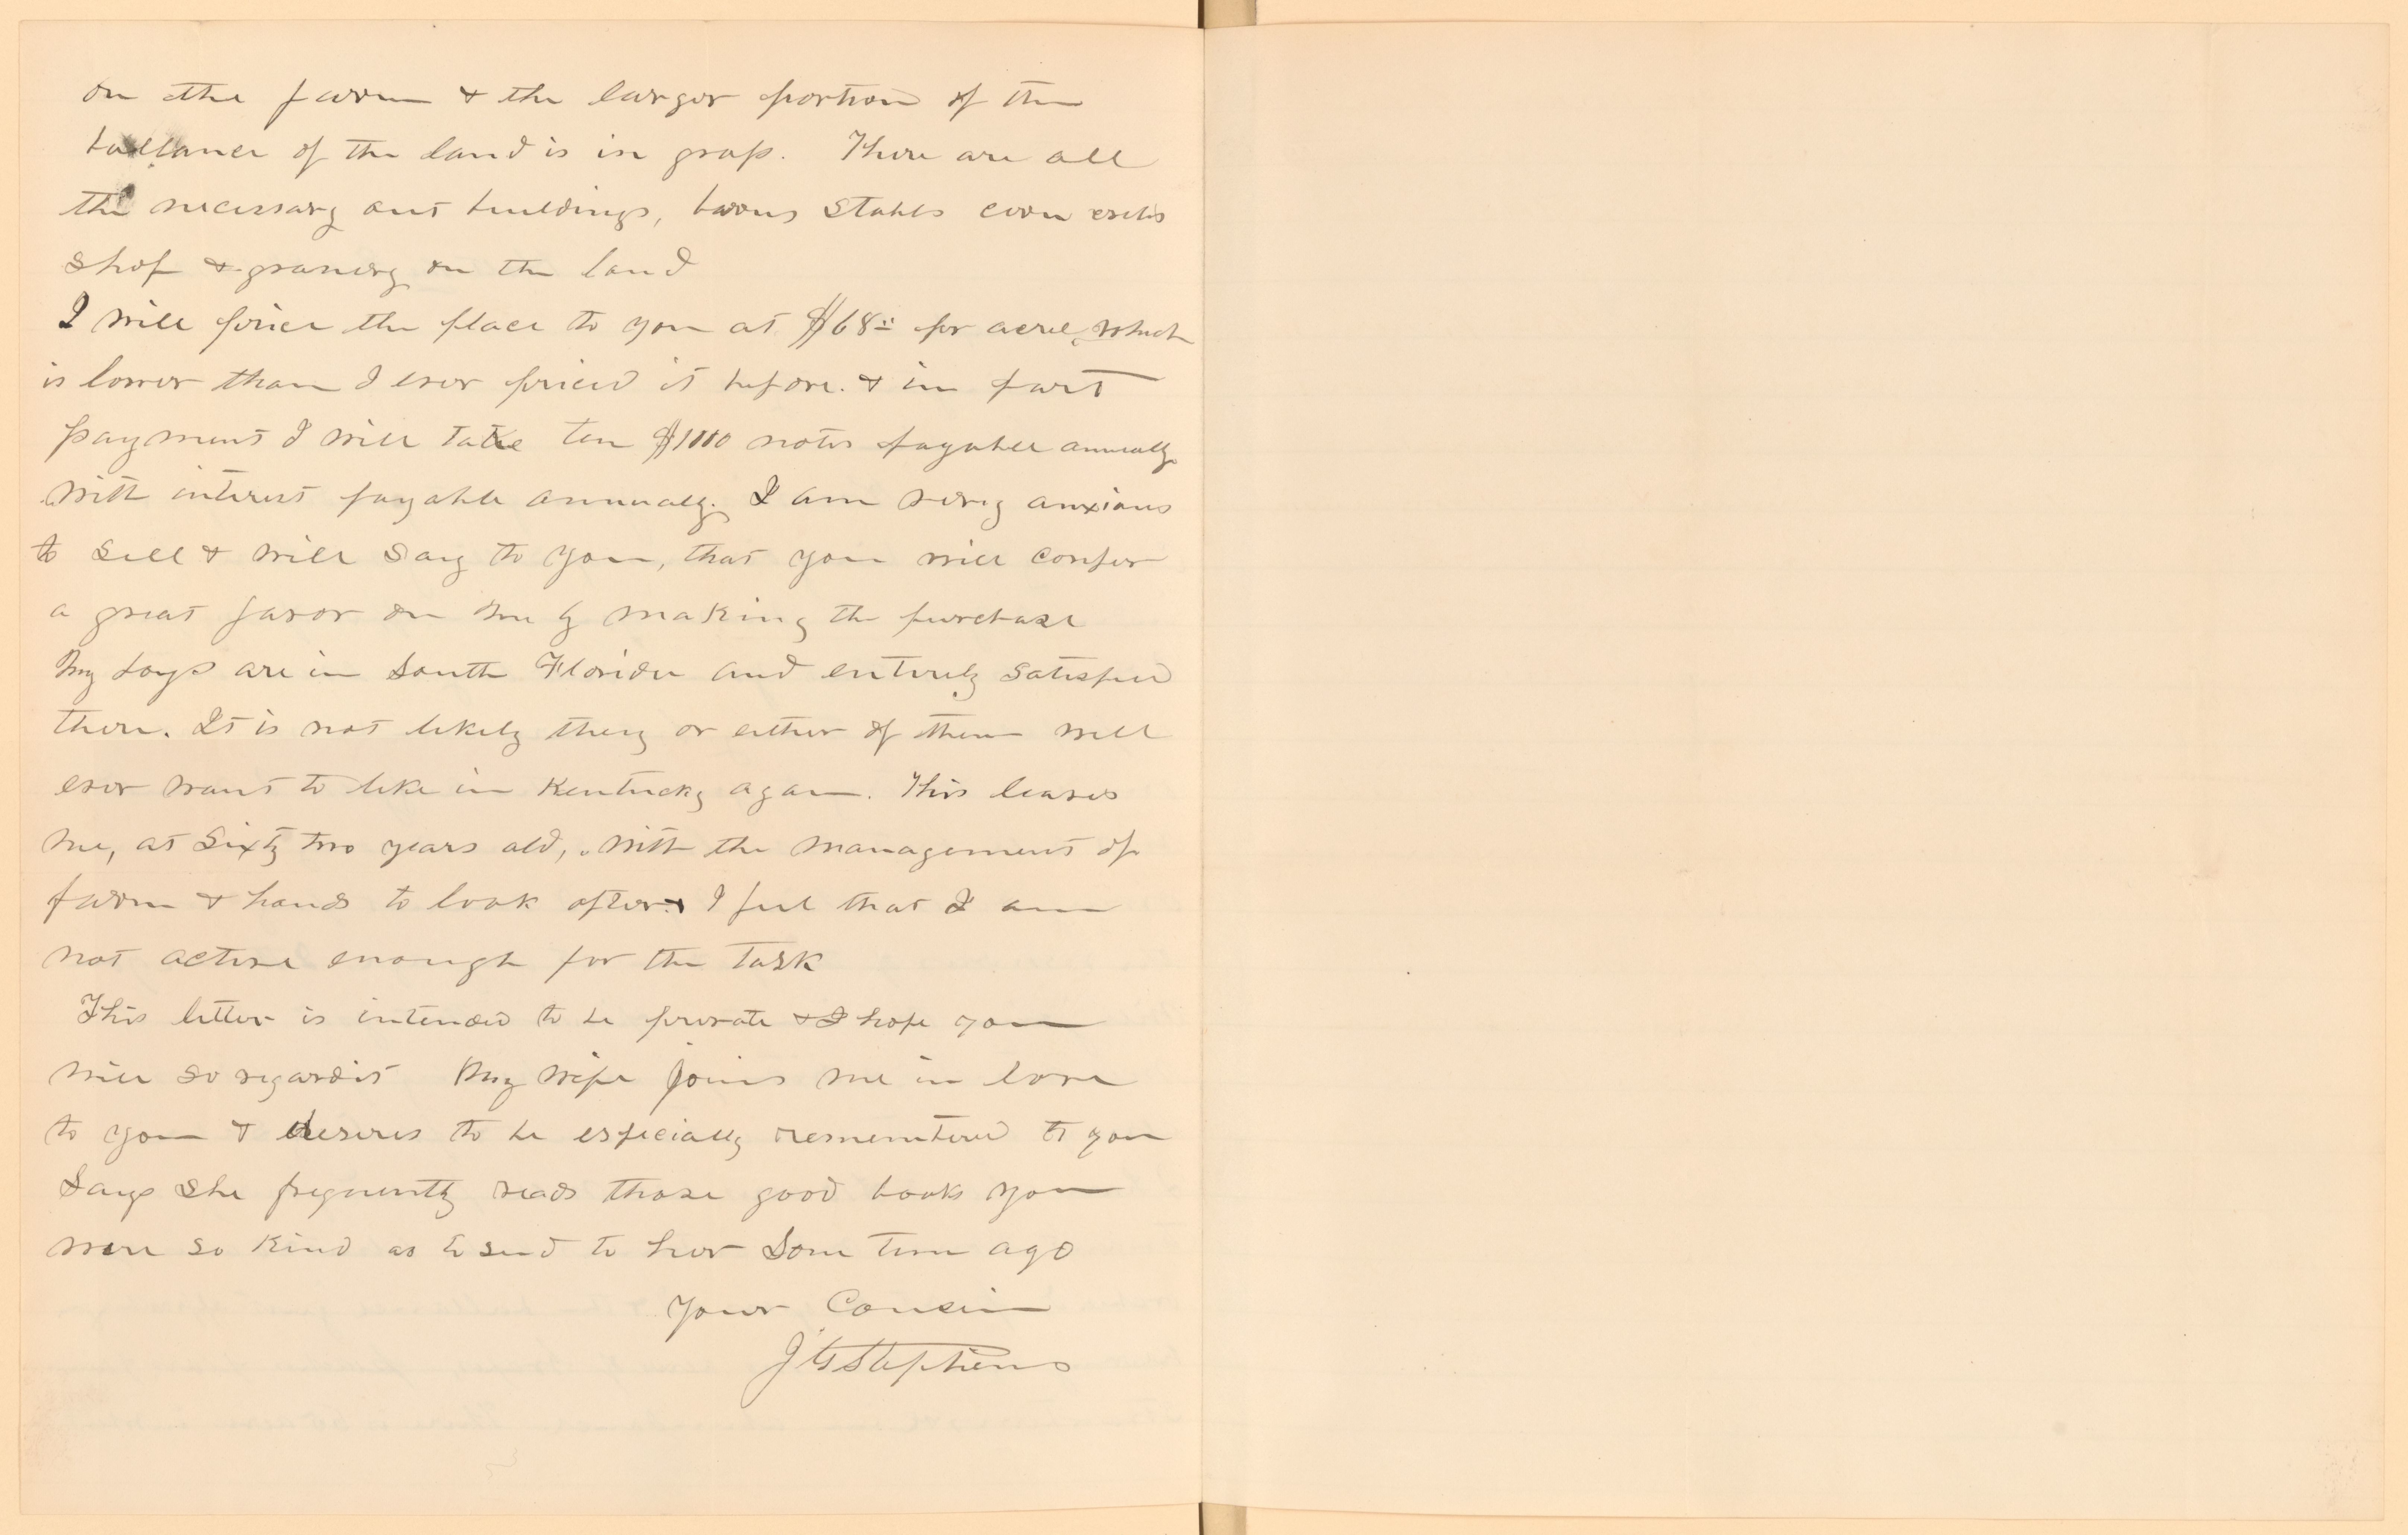 on the farm & the larger portion of the
ballance of the land is in grass. There are all
the necessary out buildings, barns stabls corn cribs
shop & granery on the land
I will price the place to you at $68.00 per acre, which
is lower than I ever priced it before. & in part
payment I will take ten $1000 notes payable annually
with interest payable annualy. I am very anxious
to sell & will say to you, that you will confer
a great favor on me by making the purchase
My boys are in South Florida and entirely satisfied
there. It is not likely they or either of them will
ever want to like in Kentucky again. This leaves
me, at sixty two years old, with the management of
farm & hands to look after & I feel that I am
not active enough for the task
This letter is intended to be private & I hope you
will so regard it My wife joins me in love
to you & desires to be especially remembered to you
Says she frequently reads those good books you
were so kind as to send to her some time ago
Your Cousin
J G Stephens